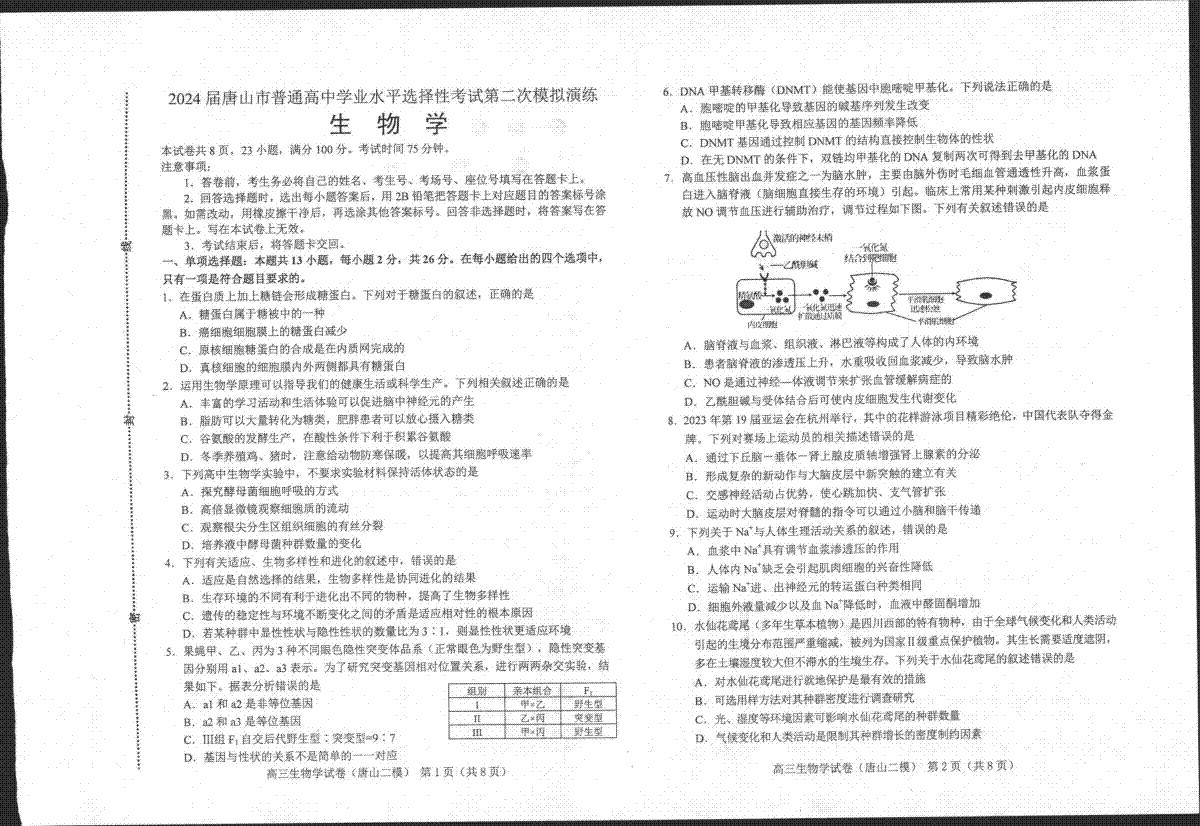 2024 届唐山市普通高中学业水平选择性考试第二次模拟演练
生 物 学
本试卷共 8 页，23 小题，满分 100 分。考试时间 75 分钟。
注意事项：
1．答卷前，考生务必将自己的姓名、考生号、考场号、座位号填写在答题卡上。
2．回答选择题时，选出每小题答案后，用 2B 铅笔把答题卡上对应题目的答案标号涂
黑。如需改动，用橡皮擦干净后，再选涂其他答案标号。回答非选择题时，将答案写在答
题卡上。写在本试卷上无效。
3．考试结束后，将答题卡交回。
一、单项选择题：本题共 13 小题，每小题 2 分，共 26 分。在每小题给出的四个选项中，
只有一项是符合题目要求的。
1．在蛋白质上加上糖链会形成糖蛋白。下列对于糖蛋白的叙述，正确的是
A．糖蛋白属于糖被中的一种
B．癌细胞细胞膜上的糖蛋白减少
C．原核细胞糖蛋白的合成是在内质网完成的
D．真核细胞的细胞膜内外两侧都具有糖蛋白
2．运用生物学原理可以指导我们的健康生活或科学生产。下列相关叙述正确的是
A．丰富的学习活动和生活体验可以促进脑中神经元的产生
B．脂肪可以大量转化为糖类，肥胖患者可以放心摄入糖类
C．谷氨酸的发酵生产，在酸性条件下利于积累谷氨酸
D．冬季养殖鸡、猪时，注意给动物防寒保暖，以提高其细胞呼吸速率
3．下列高中生物学实验中，不要求实验材料保持活体状态的是
A．探究酵母菌细胞呼吸的方式
B．高倍显微镜观察细胞质的流动
C．观察根尖分生区组织细胞的有丝分裂
D．培养液中酵母菌种群数量的变化
4．下列有关适应、生物多样性和进化的叙述中，错误的是
A．适应是自然选择的结果，生物多样性是协同进化的结果
B．生存环境的不同有利于进化出不同的物种，提高了生物多样性
C．遗传的稳定性与环境不断变化之间的矛盾是适应相对性的根本原因
D．若某种群中显性性状与隐性性状的数量比为 3∶1，则显性性状更适应环境
5．果蝇甲、乙、丙为 3 种不同眼色隐性突变体品系（正常眼色为野生型），隐性突变基
因分别用 a1、a2、a3 表示。为了研究突变基因相对位置关系，进行两两杂交实验，结
果如下。据表分析错误的是
A．a1 和 a2 是非等位基因
B．a2 和 a3 是等位基因
C．Ⅲ组 F₁ 自交后代野生型∶突变型=9∶7
D．基因与性状的关系不是简单的一一对应
组别 亲本组合 F₁
Ⅰ 甲×乙 野生型
Ⅱ 乙×丙 突变型
Ⅲ 甲×丙 野生型
高三生物学试卷（唐山二模） 第 1 页（共 8 页）
线
封
密
6．DNA 甲基转移酶（DNMT）能使基因中胞嘧啶甲基化。下列说法正确的是
A．胞嘧啶的甲基化导致基因的碱基序列发生改变
B．胞嘧啶甲基化导致相应基因的基因频率降低
C．DNMT 基因通过控制 DNMT 的结构直接控制生物体的性状
D．在无 DNMT 的条件下，双链均甲基化的 DNA 复制两次可得到去甲基化的 DNA
7．高血压性脑出血并发症之一为脑水肿，主要由脑外伤时毛细血管通透性升高，血浆蛋
白进入脑脊液（脑细胞直接生存的环境）引起。临床上常用某种刺激引起内皮细胞释
放 NO 调节血压进行辅助治疗，调节过程如下图。下列有关叙述错误的是
激活的神经末梢
乙酰胆碱
精氨酸
一氧化氮
内皮细胞
一氧化氮迅速
扩散通过质膜
一氧化氮
结合到靶细胞
平滑肌细胞
迅速松弛
平滑肌细胞
A．脑脊液与血浆、组织液、淋巴液等构成了人体的内环境
B．患者脑脊液的渗透压上升，水重吸收回血浆减少，导致脑水肿
C．NO 是通过神经—体液调节来扩张血管缓解病症的
D．乙酰胆碱与受体结合后可使内皮细胞发生代谢变化
8．2023 年第 19 届亚运会在杭州举行，其中的花样游泳项目精彩绝伦，中国代表队夺得金
牌。下列对赛场上运动员的相关描述错误的是
A．通过下丘脑－垂体－肾上腺皮质轴增强肾上腺素的分泌
B．形成复杂的新动作与大脑皮层中新突触的建立有关
C．交感神经活动占优势，使心跳加快、支气管扩张
D．运动时大脑皮层对脊髓的指令可以通过小脑和脑干传递
9．下列关于 Na⁺与人体生理活动关系的叙述，错误的是
A．血浆中 Na⁺具有调节血浆渗透压的作用
B．人体内 Na⁺缺乏会引起肌肉细胞的兴奋性降低
C．运输 Na⁺进、出神经元的转运蛋白种类相同
D．细胞外液量减少以及血 Na⁺降低时，血液中醛固酮增加
10．水仙花鸢尾（多年生草本植物）是四川西部的特有物种，由于全球气候变化和人类活动
引起的生境分布范围严重缩减，被列为国家Ⅱ级重点保护植物。其生长需要适度遮阴，
多在土壤湿度较大但不滞水的生境生存。下列关于水仙花鸢尾的叙述错误的是
A．对水仙花鸢尾进行就地保护是最有效的措施
B．可选用样方法对其种群密度进行调查研究
C．光、湿度等环境因素可影响水仙花鸢尾的种群数量
D．气候变化和人类活动是限制其种群增长的密度制约因素
高三生物学试卷（唐山二模） 第 2 页（共 8 页）